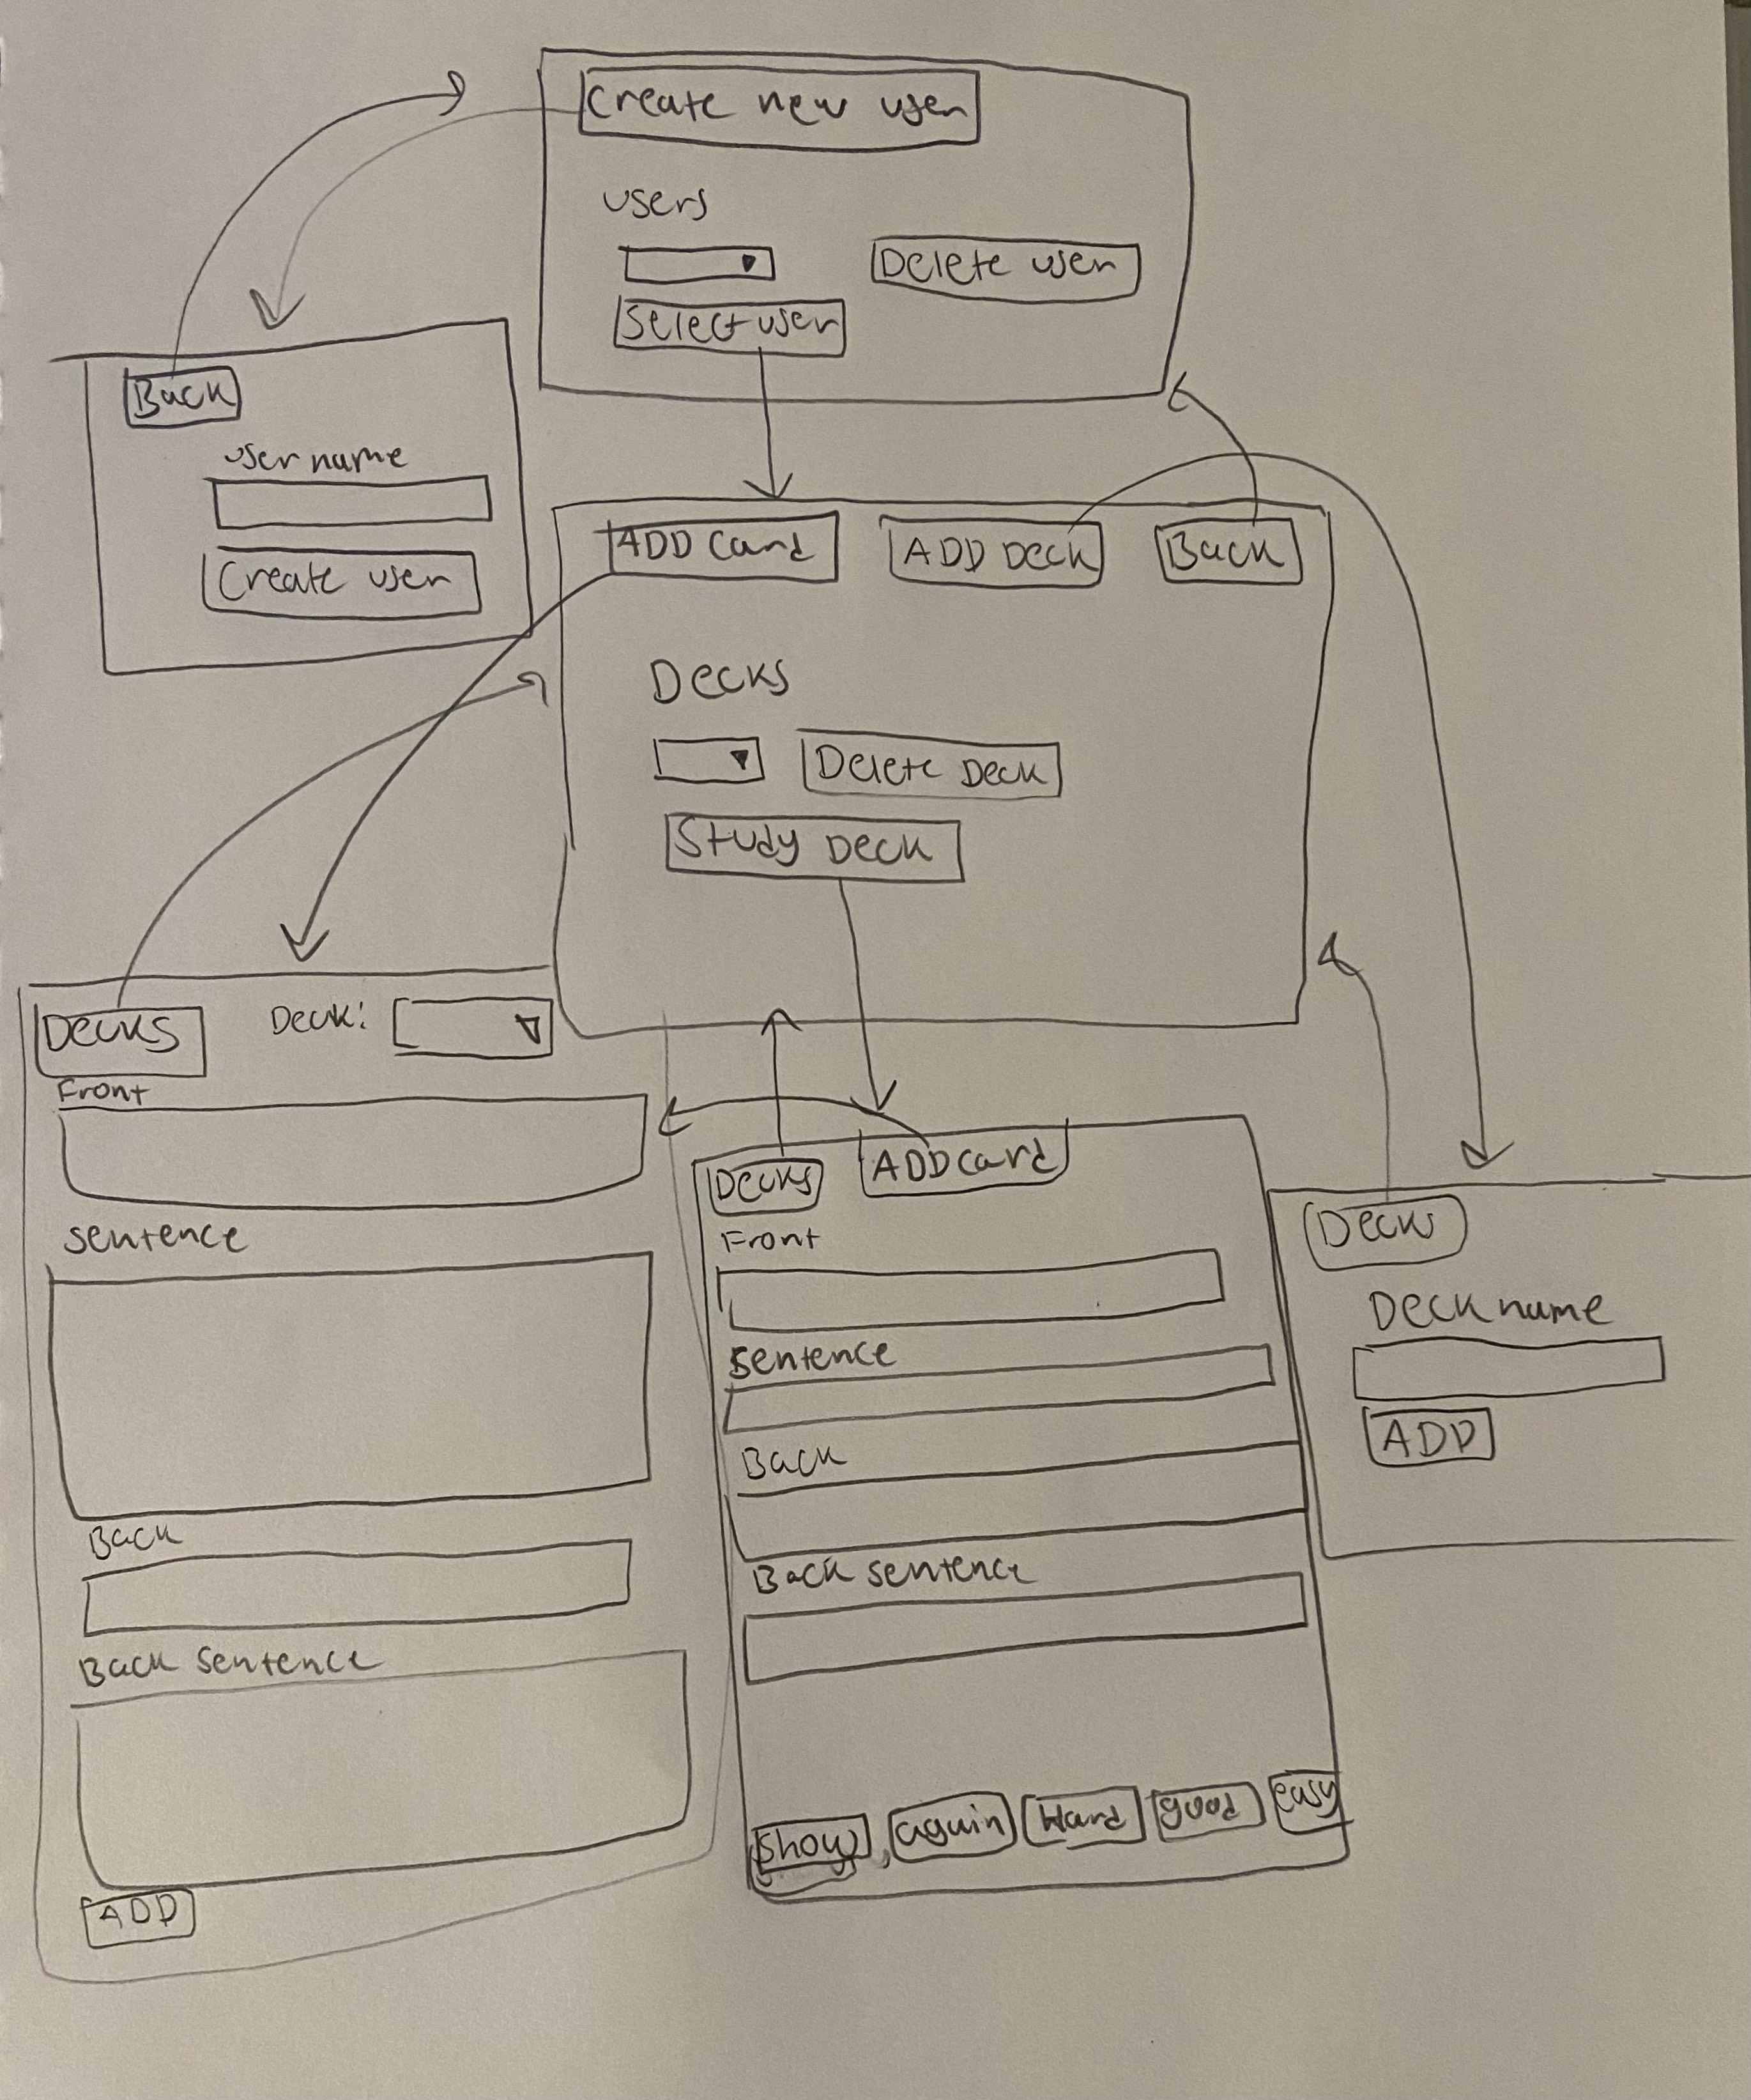 Create new user
users
Delete user
Select user
Back
user name
Create user
ADD Card
ADD Deck
Back
Decks
Delete Deck
Study Deck
Decks
Deck:
Front
sentence
Back
Back sentence
ADD
Decks
ADD card
Front
sentence
Back
Back sentence
show
again
Hard
good
easy
Decks
Deck name
ADD